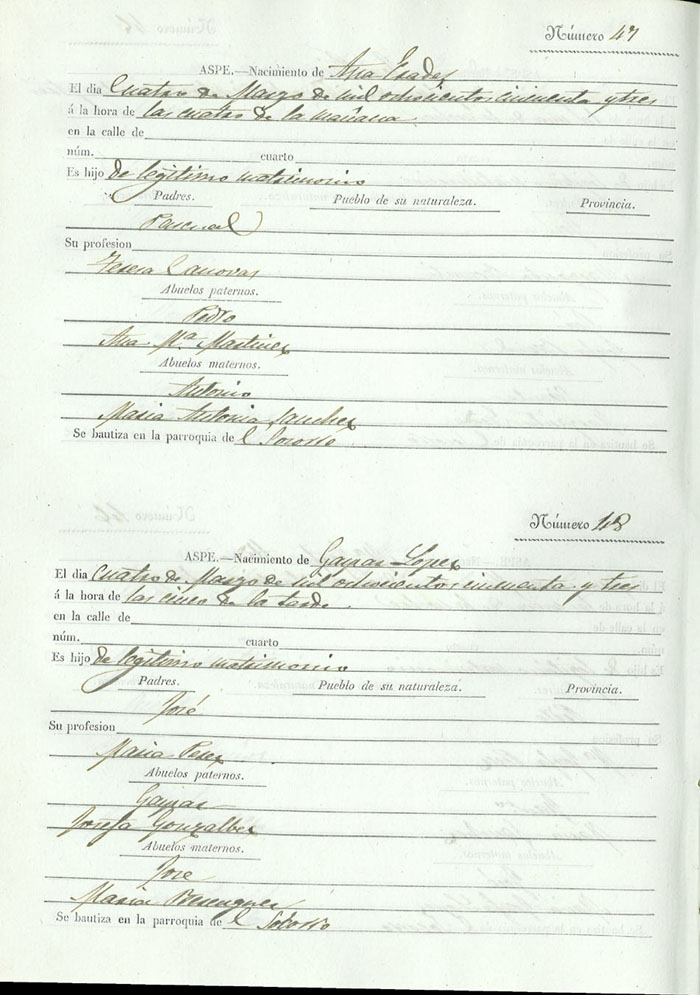 Número 47
ASPE.—Nacimiento de Ana Prades
El dia Cuatro de Marzo de mil ochocientos cincuenta y tres
á la hora de las cuatro de la mañana
en la calle de
núm. cuarto
Es hijo de legitimo matrimonio
Padres. Pueblo de su naturaleza. Provincia.
Pascual
Su profesion
Teresa Canovas
Abuelos paternos.
Pedro
Ana Mª Martinez
Abuelos maternos.
Antonio
Maria Antonia Sanchez
Se bautiza en la parroquia de l Socorro
Número 48
ASPE.—Nacimiento de Gaspar Lopez
El dia Cuatro de Marzo de mil ochocientos cincuenta y tres
á la hora de las cinco de la tarde
en la calle de
núm. cuarto
Es hijo de legitimo matrimonio
Padres. Pueblo de su naturaleza. Provincia.
José
Su profesion
Maria Perez
Abuelos paternos.
Gaspar
Josefa Gonzalbez
Abuelos maternos.
Jose
Maria Berenguer
Se bautiza en la parroquia de l Socorro